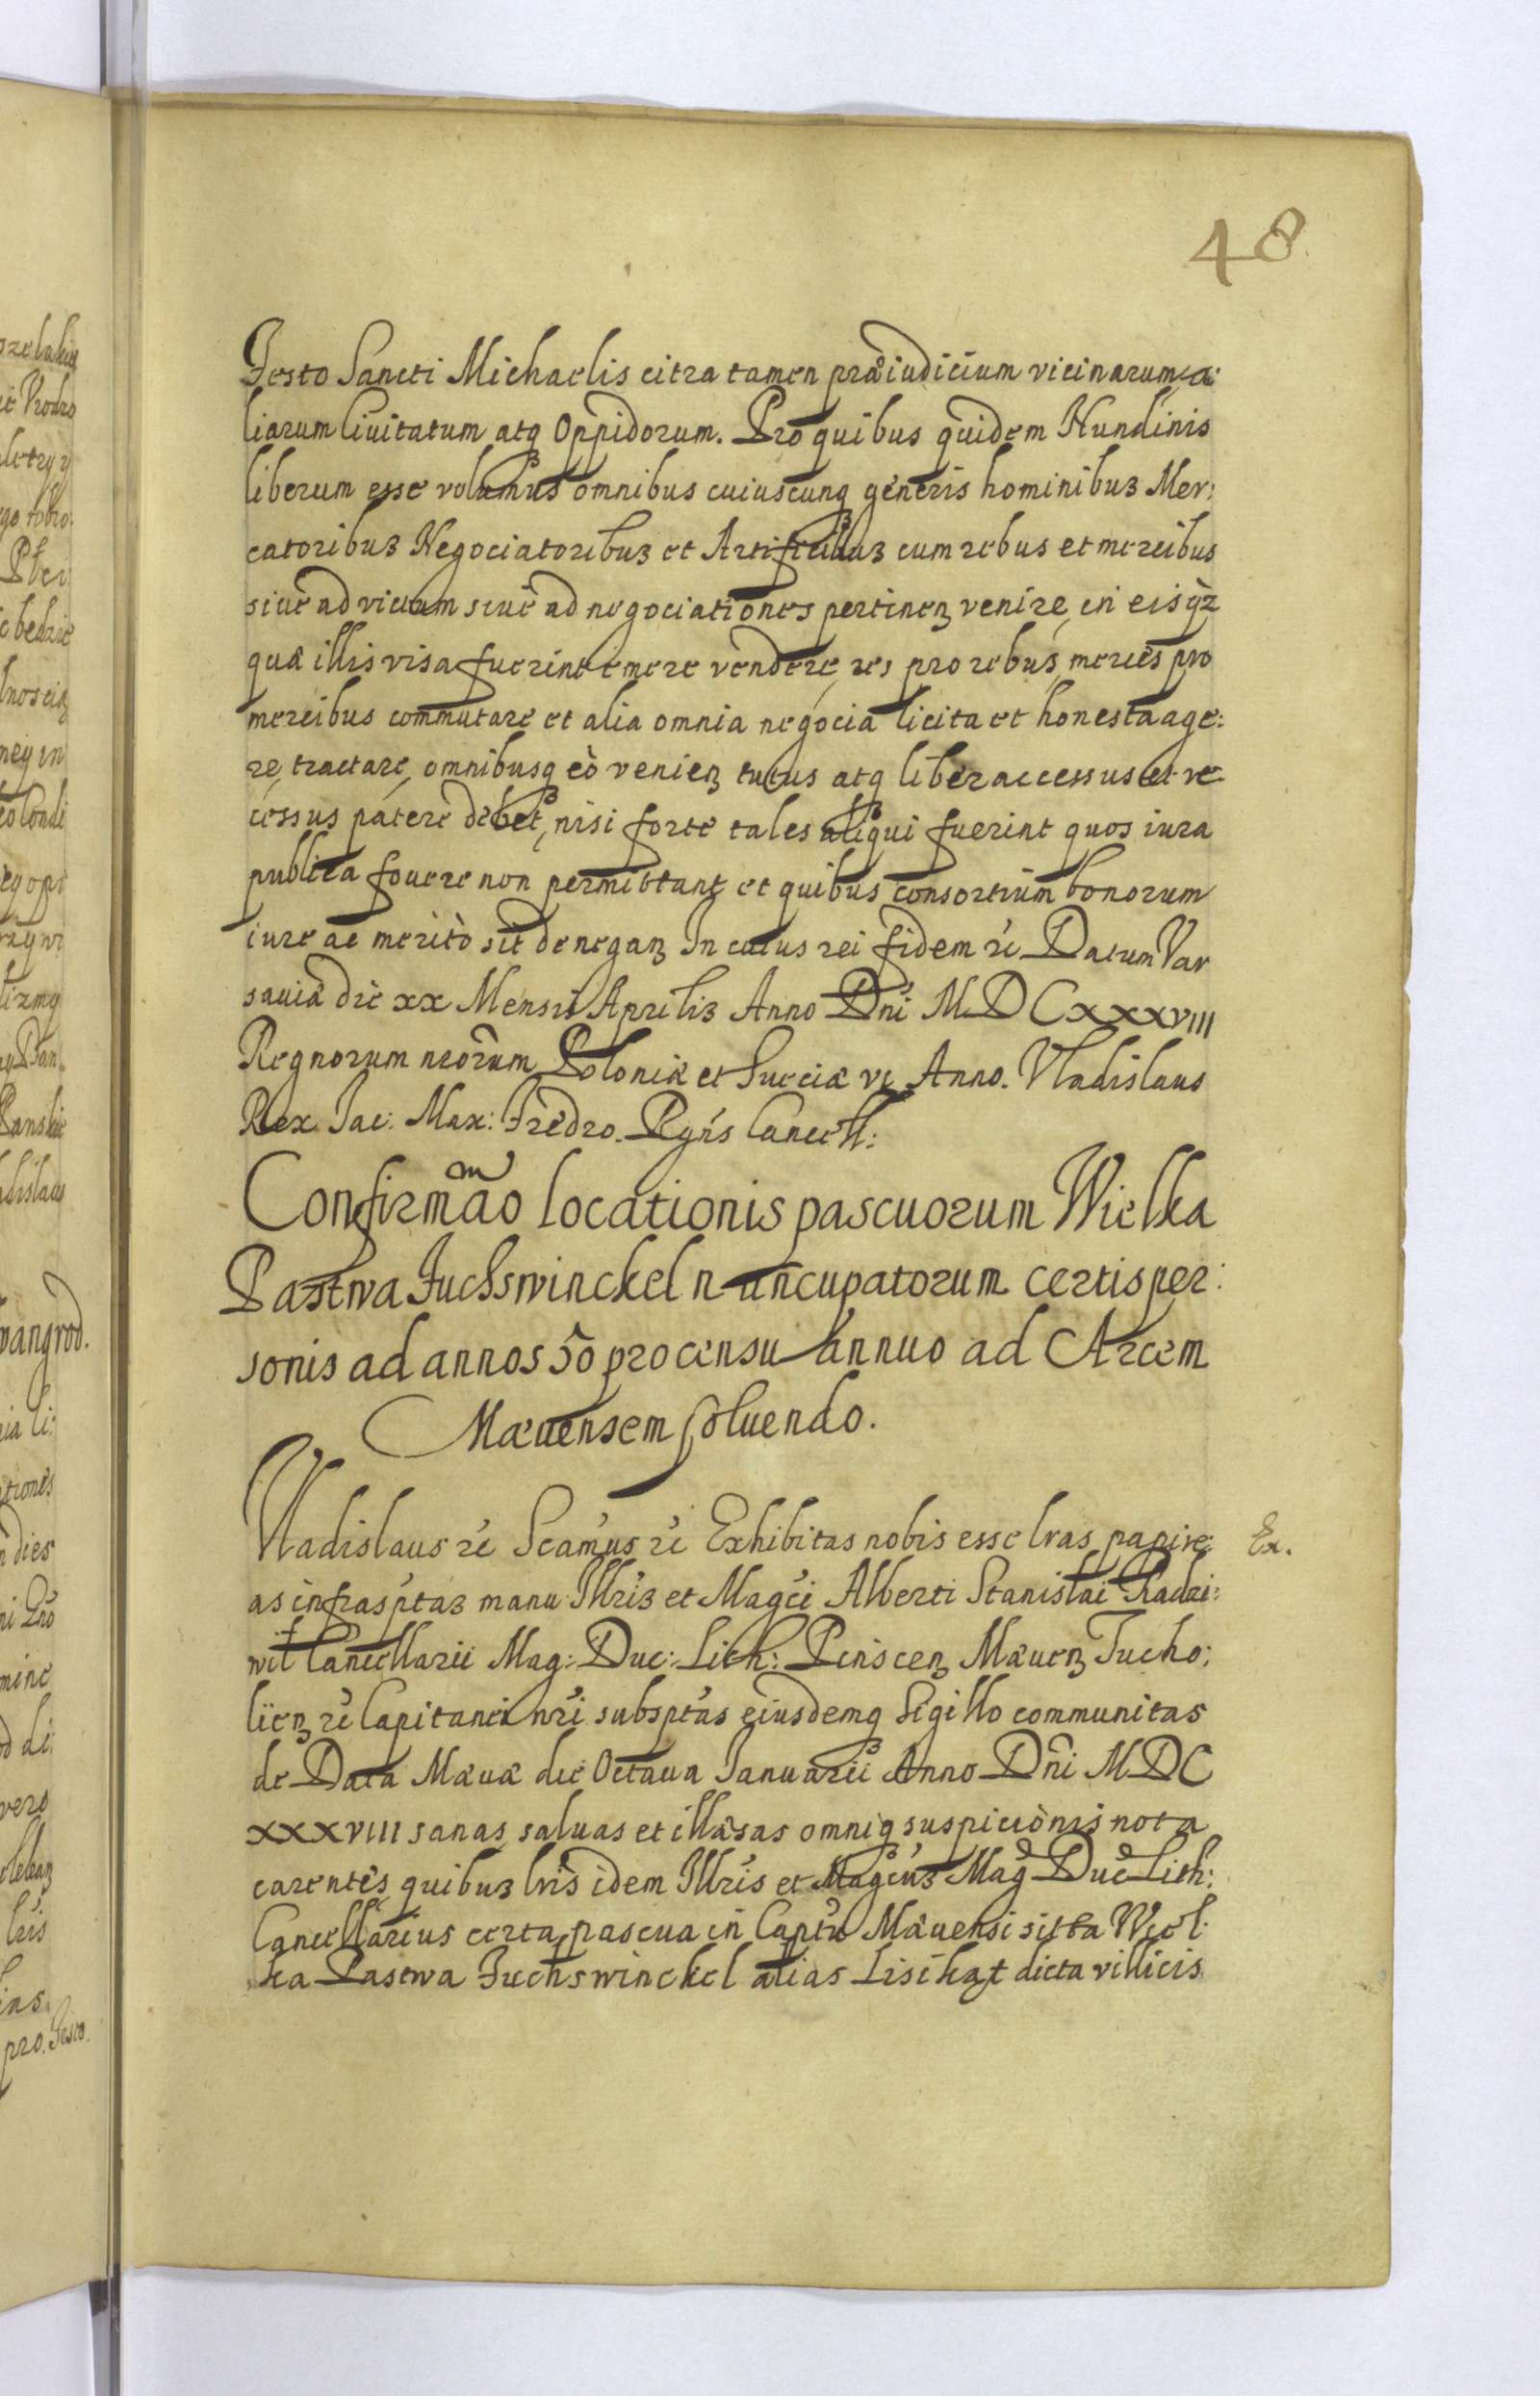 48
Festo Sancti Michaelis citra tamen præiudicium vicinarum, a:
liarum Ciuitatum atq Oppidorum. Pro quibus quidem Nundinis
liberum esse volumus omnibus cuiuscunq generis hominibuz Mer:
catoribuz Negociatoribuz et Artificibuz cum rebus et mercibus
siue ad victum siue ad negociationes pertinenz venire, in eisqz
quæ illis visa fuerint emere vendere, res pro rebus, merces pro
mercibus commutare et alia omnia negocia licita et honesta age:
re, tractare, omnibusq eò venienz tutus atq liber accessus et re
cessus patere debet, nisi forte tales aliqui fuerint quos iura
publica fouere non permittant et quibus consortium bonorum
iure ac meritò sit deneganz In cuius rei fidem rė Datum Var
sauiæ die xx Mensis Aprilis Anno Dni MDCxxxviii
Regnorum nrorum Poloniæ et Sueciæ vi, Anno. Vladislaus
Rex. Jac: Max: Fredro. Rgns Cancell:
Confirmão locationis pascuorum Wielka
Pastwa Fuchswinckel nuncupatorum certis per:
sonis ad annos 50 pro censu annuo ad Arcem
Mæuensem soluendo.
Vladislaus rė Scamus rė Exhibitas nobis esse lras papire: Ex.
as infrasptas manu Illris et Magci Alberti Stanislai Radzi:
wił Cancellarii Mag: Duc: Lith: Pinscenz Mæuenz Tucho:
lienz rė Capitanei nri subsptas eiusdemq Sigillo communitas
de Data Mæuæ die Octaua Januarii Anno Dni MDC
XXXVIII sanas, saluas et illæsas omniq suspicionis nota
carentes, quibuz lris idem Illris et Magcus Mag Duc Lith:
Cancellarius certa pascua in Captu Mæuensi sita Wiel:
ka Pastwa Fuchswinckel alias Lisi kąt dicta villicis